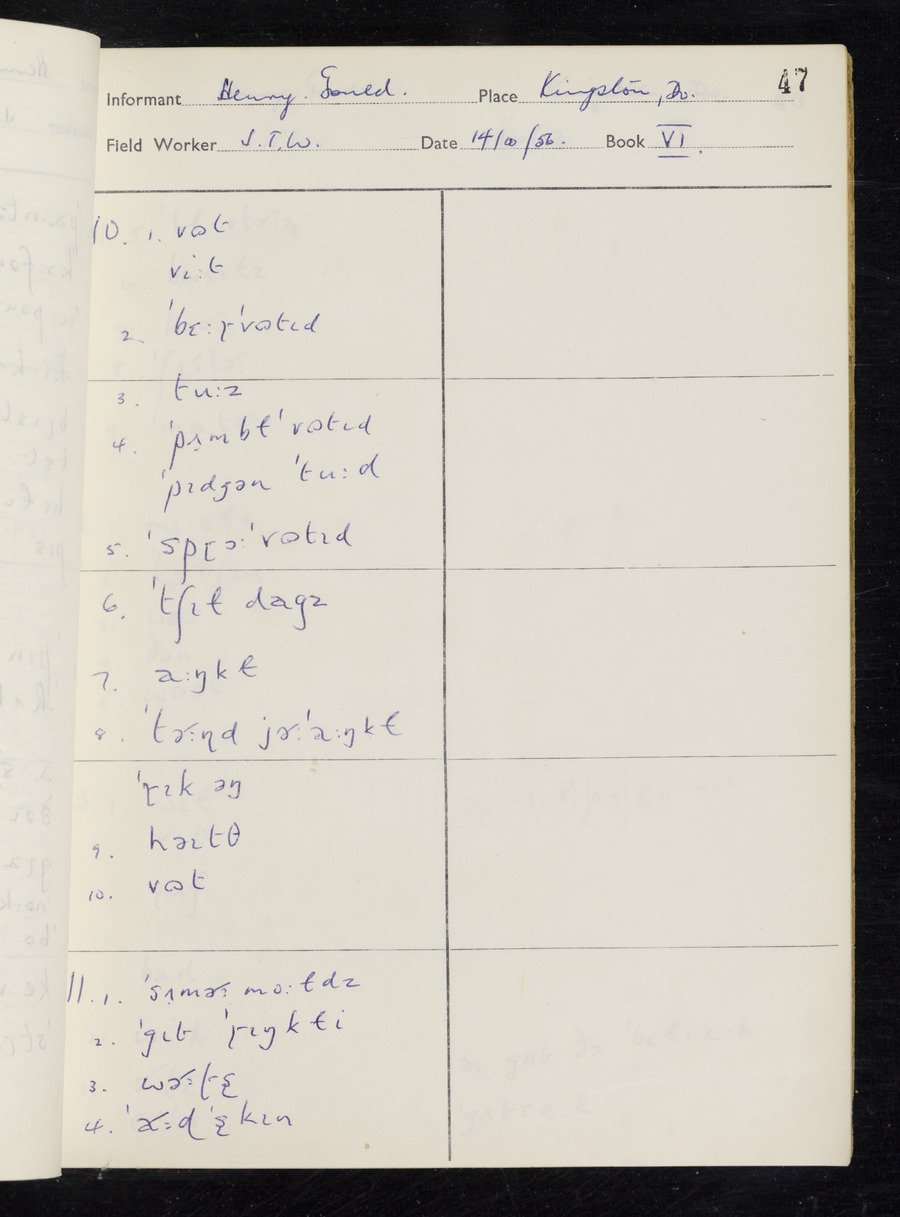 47
Informant Henry Place Kingston, Do.
Field Worker J.T.W. Date 14/ /56. Book VI.
10. 1. vɷt
vi:t
2. ˈbɛ:ɽˈvɷtɪd
3. tu:z
4. ˈpɪmbɫˈvɷtɪd
ˈpɪdʒən ˈtu:d
5. ˈspɽɔ:ˈvɷtɪd
6. ˈtʃɪɫ daɡz
7. a:ŋkɫ
8. ˈtɚ:ɳd jɚ:ˈa:ŋkɫ
ˈɽɪk əŋ
9. həɪtθ
10. vɷt
11. 1. ˈsʌmɚ: mo:ɫdz
2. ˈɡɪt ˈɽɪŋkɫi
3. wɚ:ʈʂ
4. ˈɚ:ɖ ˈʂkɪn